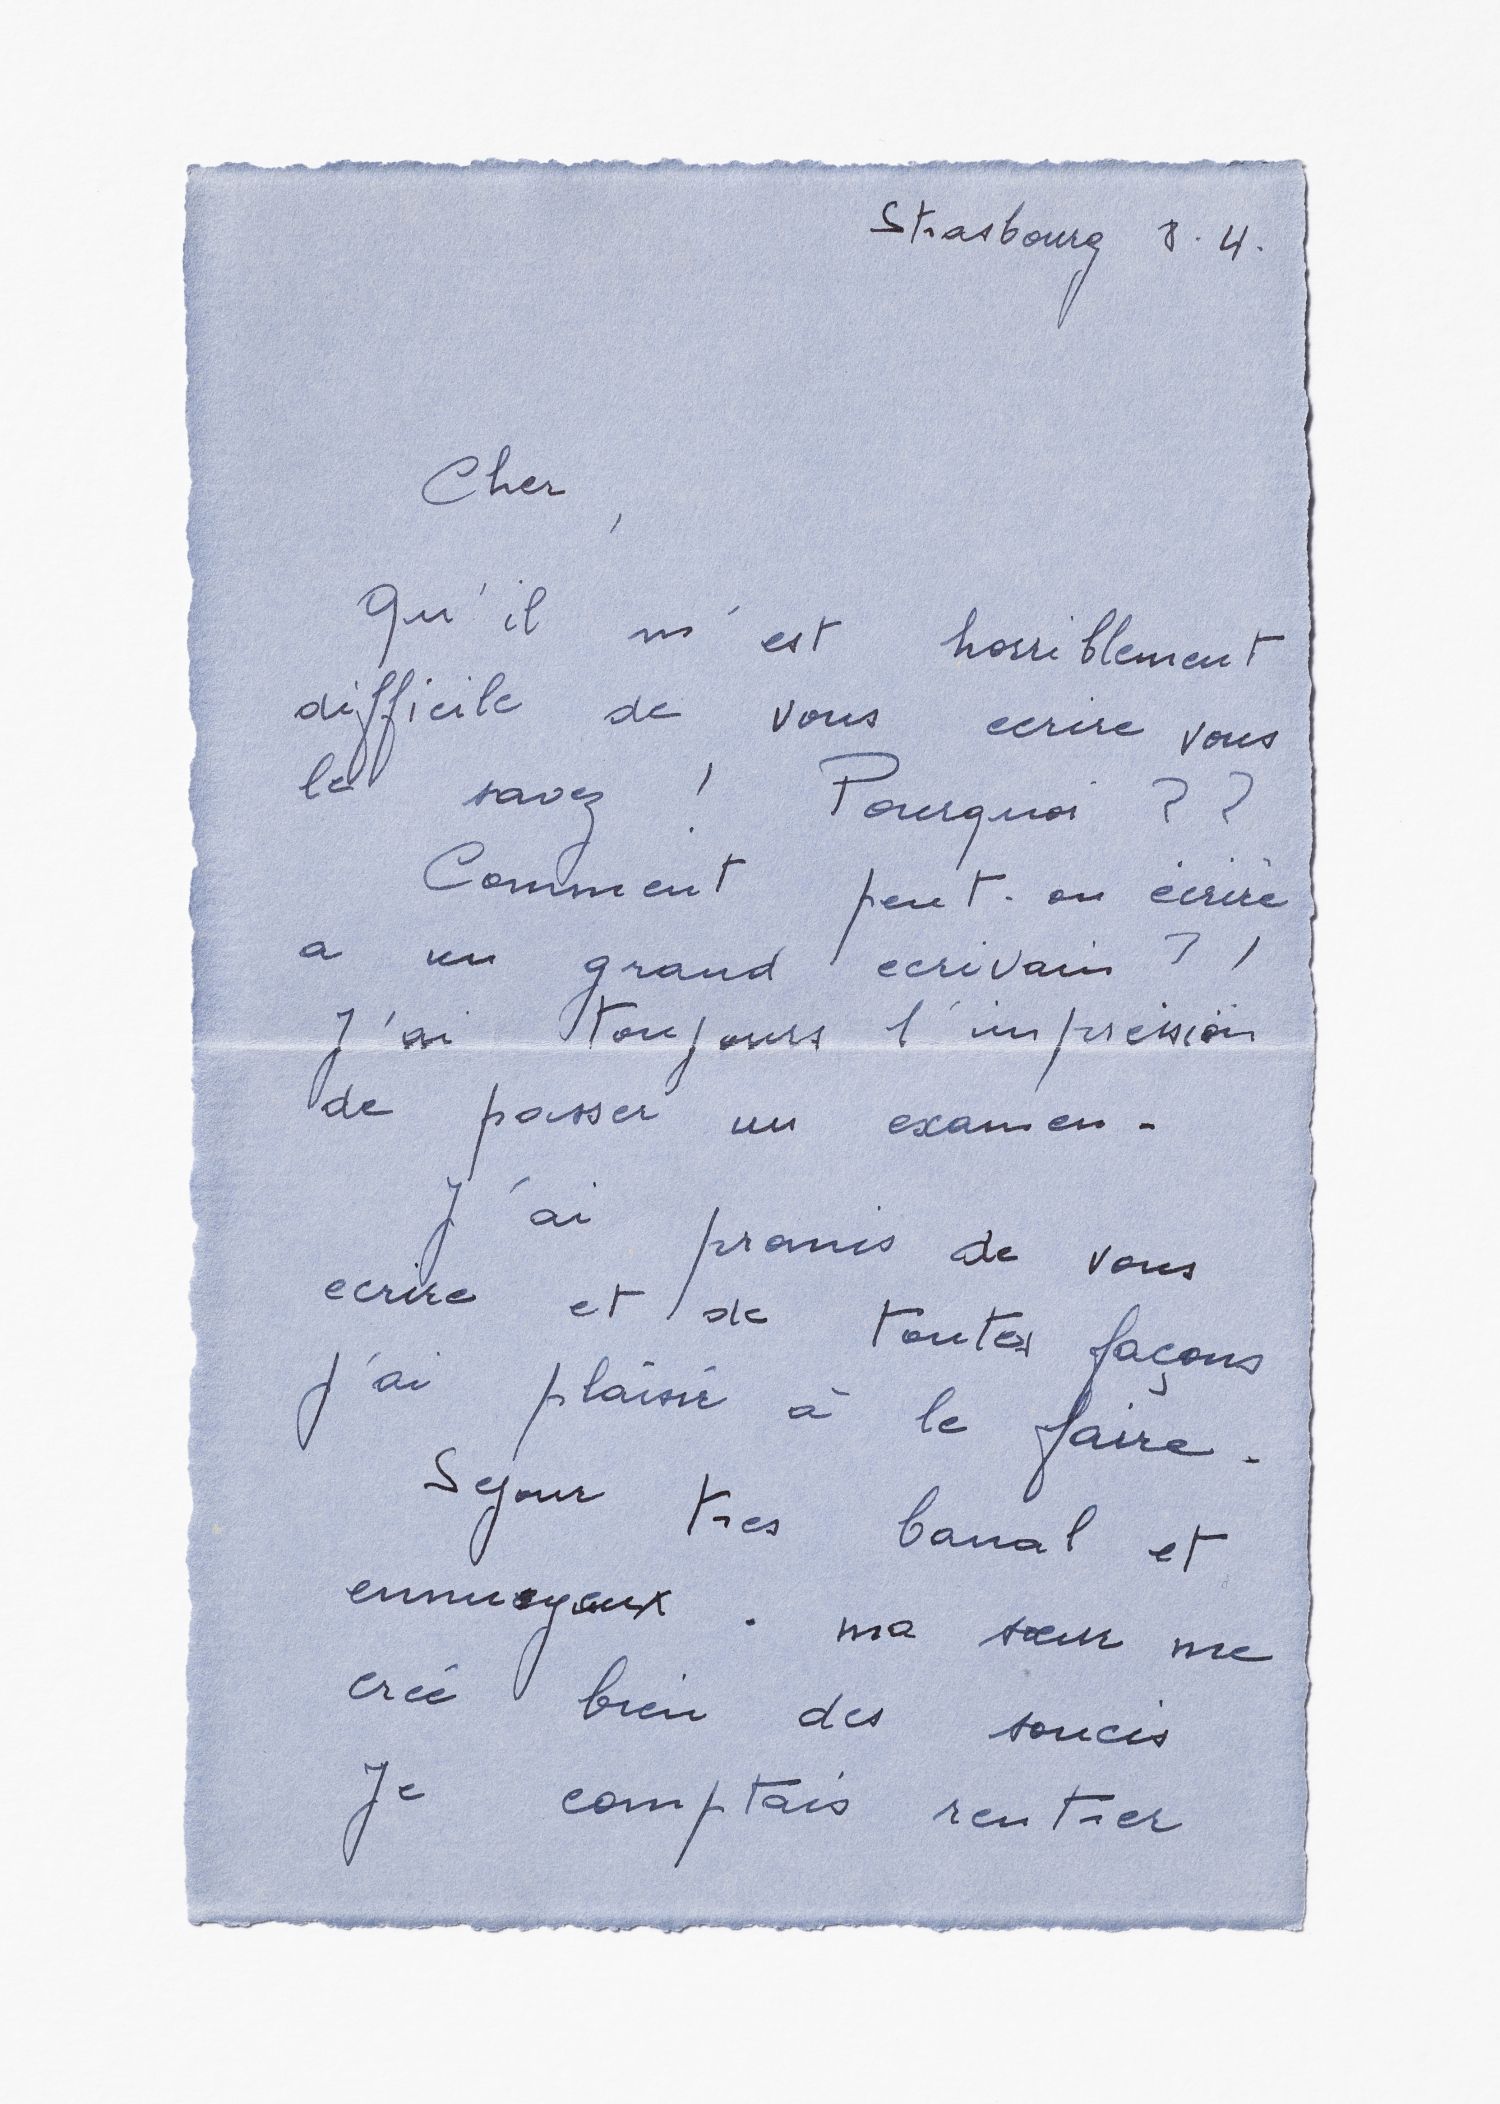 Strasbourg 8.4.
Cher ,
Qu'il m'est horriblement
difficile de vous ecrire vous
le savez ! Pourquoi ??
Comment peut-on écrire
a un grand ecrivain ?!
J'ai toujours l'impression
de passer un examen -
J'ai promis de vous
ecrire et de toutes façons
j'ai plaisir à le faire -
Sejour tres banal et
ennuyeux . ma sœur me
creé bien des soucis
Je comptais rentrer